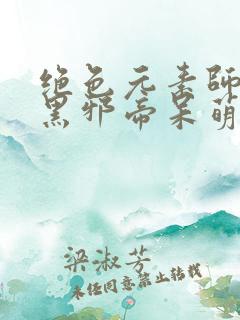 绝色元素師
黑邪帝呆萌
梁淑芳
未经同意禁止转载